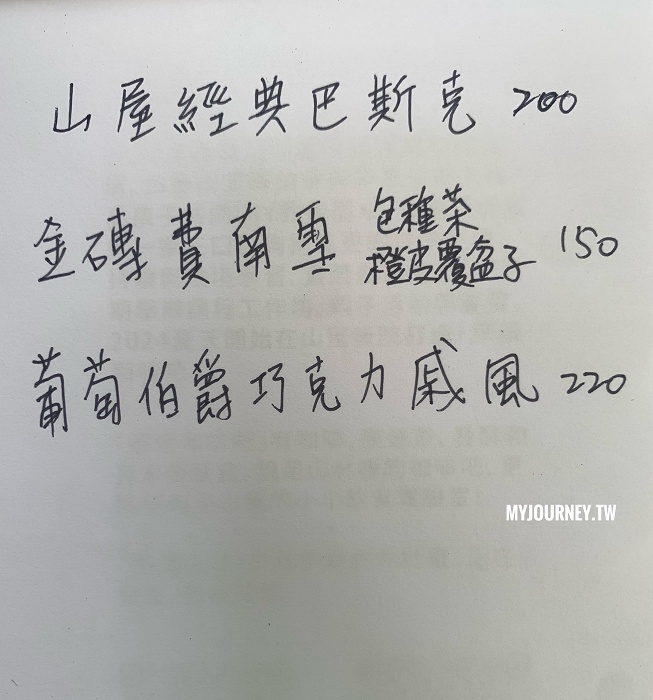 山屋經典巴斯克 200
金磚費南雪 包種茶 150
橙皮覆盆子
葡萄伯爵巧克力戚風 220
MYJOURNEY.TW